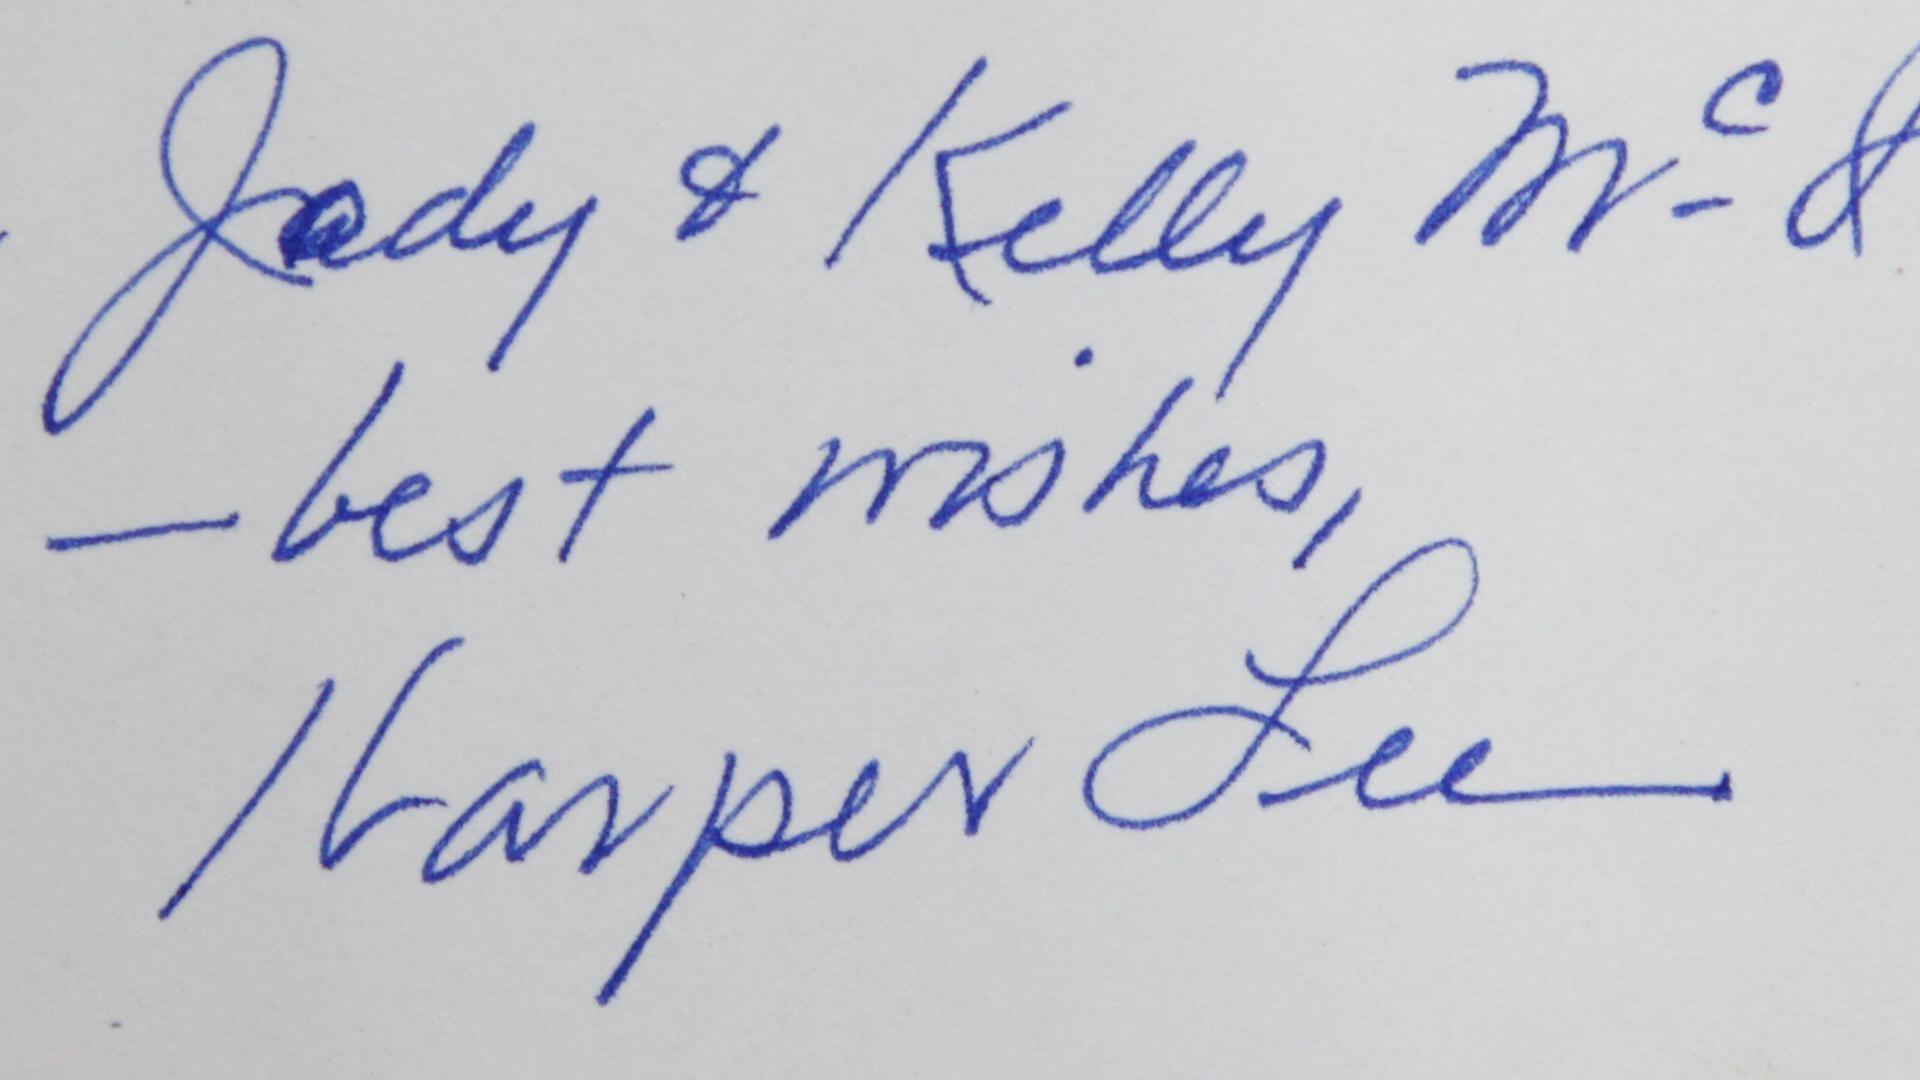 Jody & Kelly Mc
— best wishes,
Harper Lee